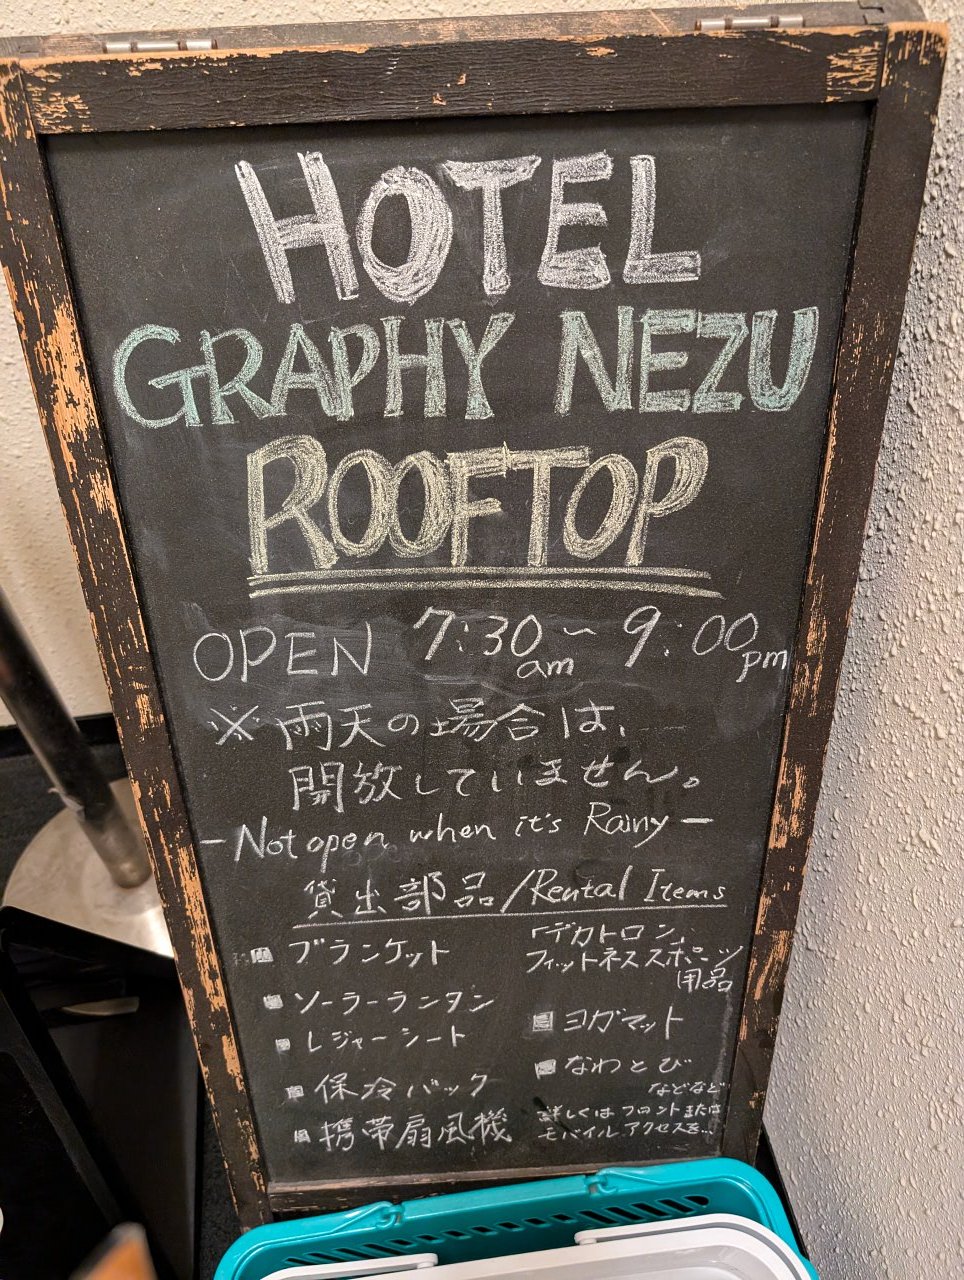 HOTEL
GRAPHY NEZU
ROOFTOP
OPEN 7:30am ~ 9:00pm
※雨天の場合は、
開放していません。
- Not open when it's Rainy -
貸出部品/Rental Items
■ ブランケット
■ ソーラーランタン
■ レジャーシート
■ 保冷バック
■ 携帯扇風機
「デカトロン」
フィットネススポーツ
用品
■ ヨガマット
■ なわとび
などなど
詳しくはフロントまたは
モバイルアクセスを...